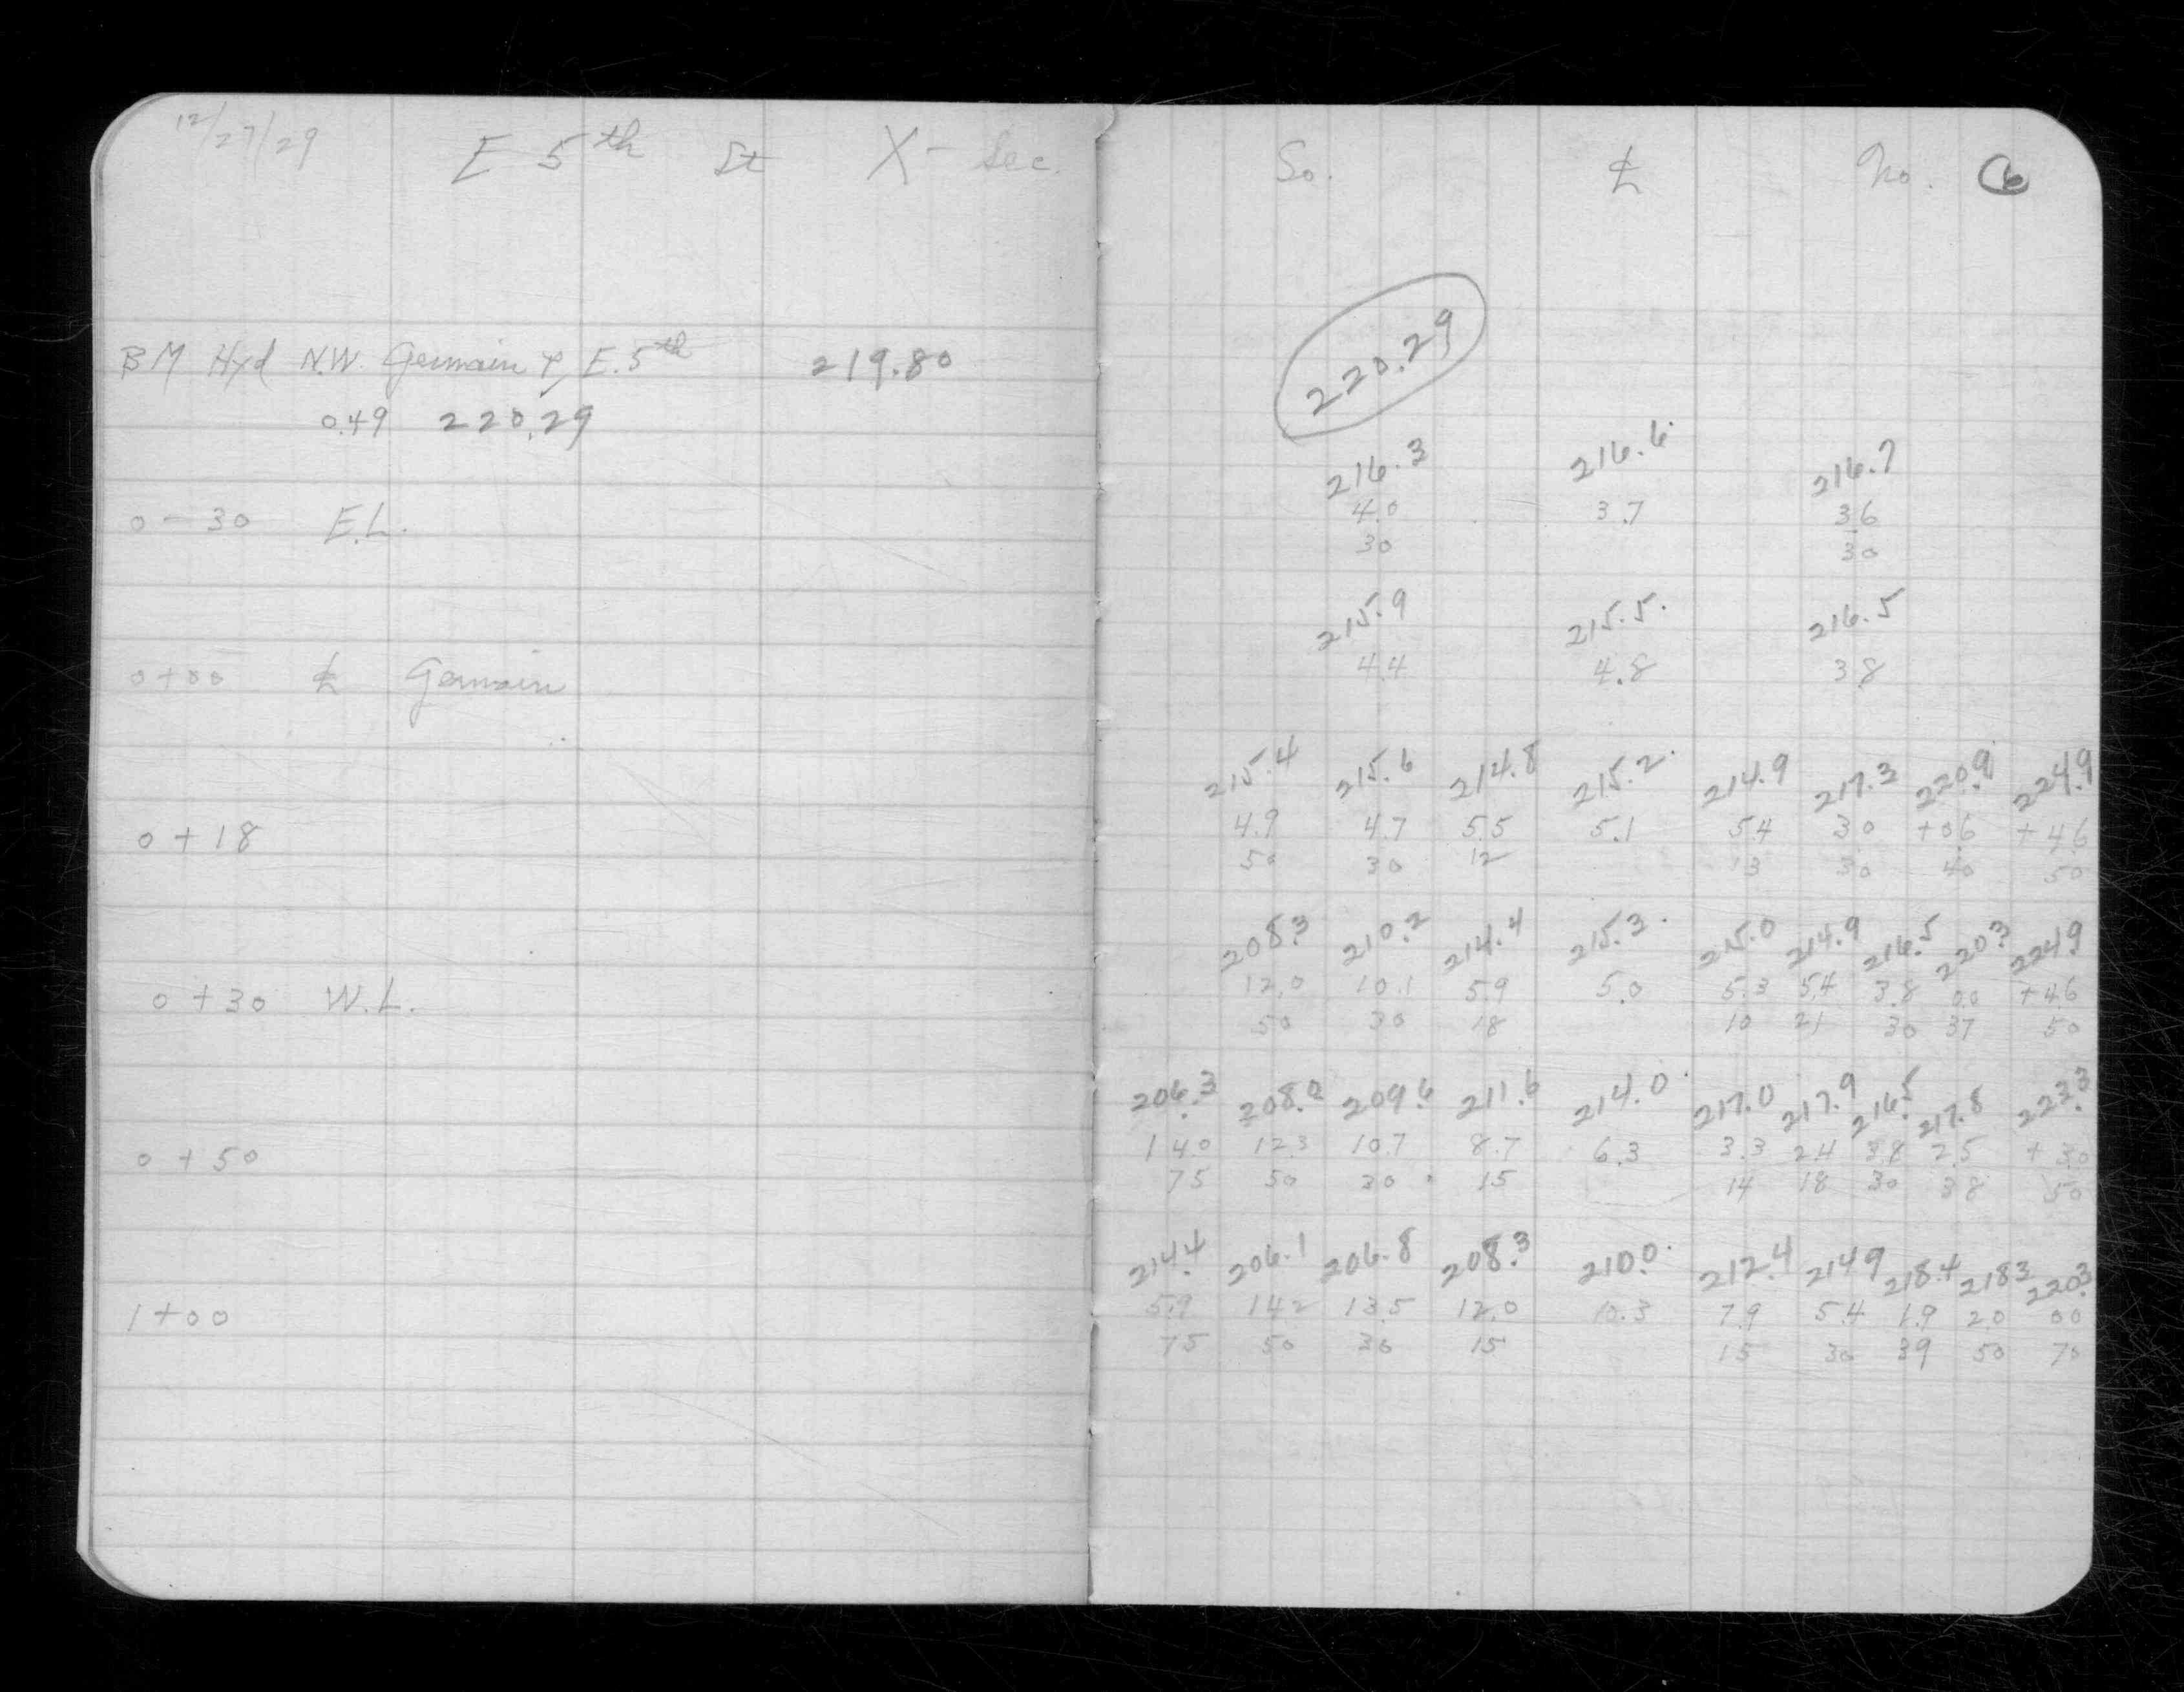 12/27/29 E 5th St X-Sec.
BM Hyd N.W. Germain & E. 5th 219.80
0.49 220.29
0-30 E.L.
0+00 ℄ Germain
0+18
0+30 W.L.
0+50
1+00
So. ℄ No. 6
220.29
216.3 216.6 216.7
4.0 3.7 3.6
30 30
215.9 215.5 216.5
4.4 4.8 3.8
215.4 215.6 214.8 215.2 214.9 217.3 220.9 224.9
4.9 4.7 5.5 5.1 5.4 3.0 +0.6 +4.6
50 30 12 13 30 40 50
208.3 210.2 214.4 215.3 215.0 214.9 216.5 220.3 224.9
12.0 10.1 5.9 5.0 5.3 5.4 3.8 0.0 +4.6
50 30 18 10 21 30 37 50
206.3 208.0 209.6 211.6 214.0 217.0 217.9 216.5 217.8 223.3
14.0 12.3 10.7 8.7 6.3 3.3 2.4 3.8 2.5 +3.0
75 50 30 15 14 18 30 38 50
214.4 206.1 206.8 208.3 210.0 212.4 214.9 218.4 218.3 220.3
5.9 14.2 13.5 12.0 10.3 7.9 5.4 1.9 2.0 0.0
75 50 30 15 15 30 39 50 70